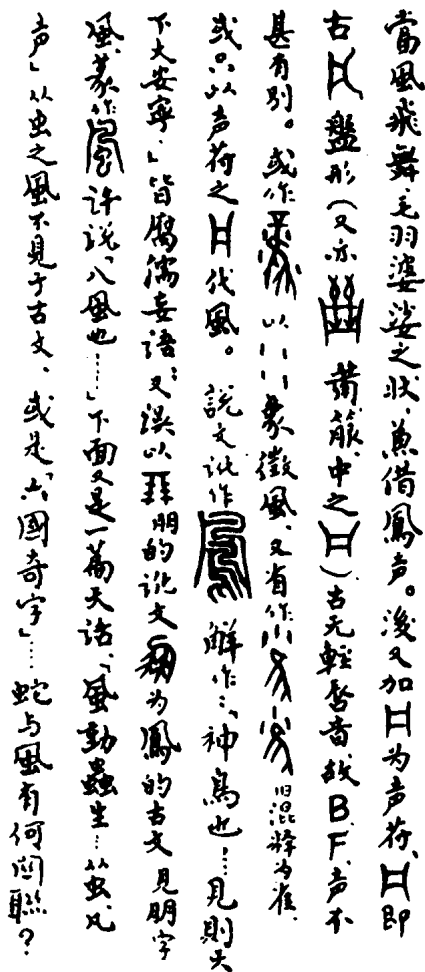 當風飛舞、毛羽婆娑之狀、兼借鳳声。後又加 为声符、即
古 盤形（又亦 葡箙、中之 ）古无輕唇音、故B.F.声不
甚有别。或作 以八八象微風、又有作 旧混釋为雀、
或只以声符之 代風。說文訛作 解作：「神鳥也……見則天
下大安寧、」皆腐儒妄語；又误以 朋的说文 为鳳的古文 見朋字
風、篆作 許说、「八風也……」下面又是一篇天话、「風動蟲生…从虫、凡
声」从虫之風不見于古文、或是「六國奇字」……蛇与風有何関聯？